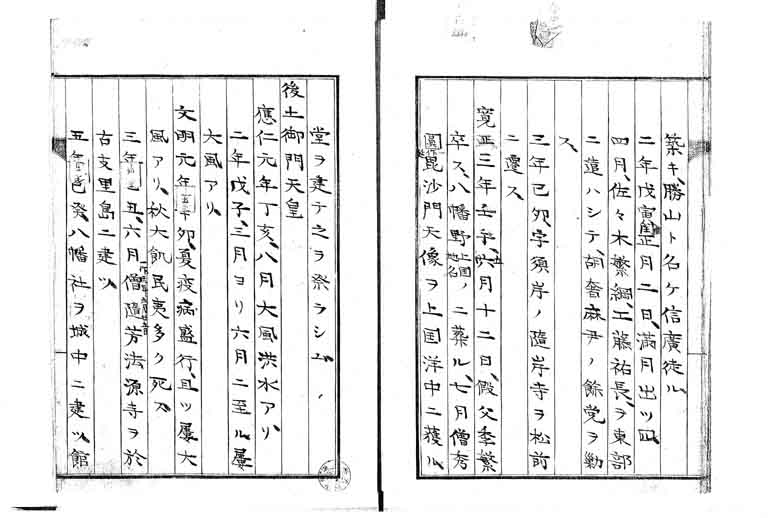 築キ、勝山ト名ケ信廣徙ル、
二年戊寅閏正月二日、満月出ツ四
四月、佐々木繁綱、工藤祐長、ヲ東部
ニ遣ハシテ、胡奢麻尹ノ餘党ヲ勦
ス、
三年己卯、字須岸ノ隨岸寺ヲ松前
ニ遷ス、
寛正三年壬午、五月十二日、假父季繁
卒ス、八幡野上国ノ地名ニ葬ル、七月僧秀
圓毘沙門天像ヲ上国洋中ニ獲ル、
堂ヲ建テ之ヲ祭ラシム、
後土御門天皇
應仁元年丁亥、八月大風洪水アリ、
二年戊子、三月ヨリ六月ニ至ル屡
大風アリ、
文明元年 夏疫病盛行、且ツ屡大
風アリ、秋大飢民夷多ク死ス、
三年 丑、六月僧隨芳法源寺ヲ於
古支里島ニ建ツ、
五年 癸、八幡社ヲ城中ニ建ツ、館